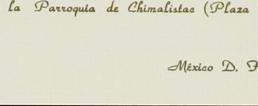 la Parroquia de Chimalistac (Plaza
México D. F